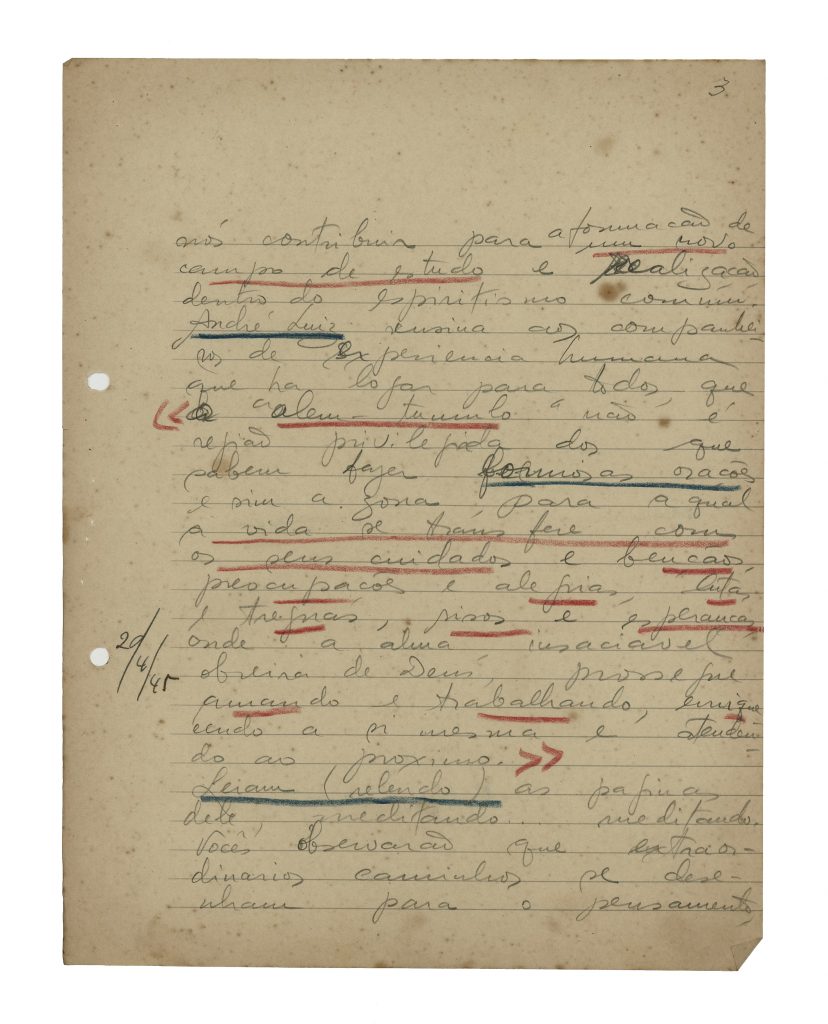 3
nós contribuir para a formacão de
um novo
campo de estudo e realizacão
dentro do espiritismo commum.
André Luiz ensina aos companhei-
ros de experiencia humana
que ha logar para todos, que
<< o "alem-tumulo" não é
região privilegiada dos que
sabem fazer formosas oracões
e sim a zona para a qual
a vida se transfere com
os seus cuidados e bencãos,
preocupacões e alegrias, lutas
e treguas, risos e esperancas,
onde a alma insaciavel,
20/4/45
obreira de Deus, prossegue
amando e trabalhando, enrique
cendo a si mesma e atenden-
do ao proximo. >>
Leiam (relendo) as paginas
dele, meditando... meditando.
Vocês observarão que extraor-
dinarios caminhos se dese-
nham para o pensamento,